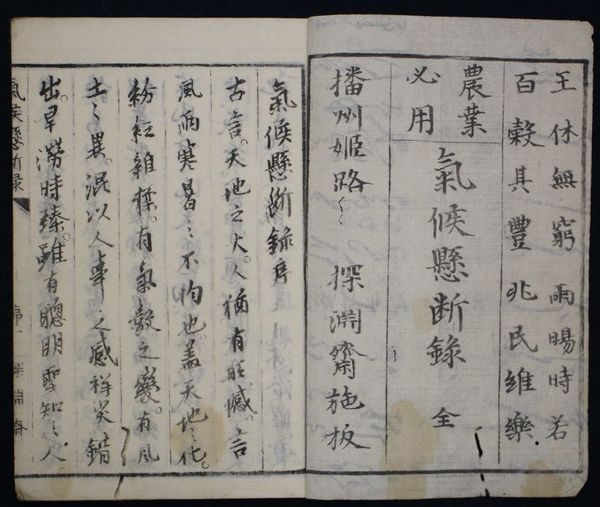 王休無窮雨暘時若
百穀其豐兆民維樂
農業
必用
氣候懸断錄 全
播州姫路 探淵齋施板
氣候懸断錄序
古言。天地之大。人猶有所憾。言
風雨寒暑之不均也蓋天地之化。
紛紜雜糅。有氣數之變。有風
土之異。混以人事之感祥災錯
出。旱澇時臻。雖有聰明聖知之人
氣候懸断録 序一 探淵齋